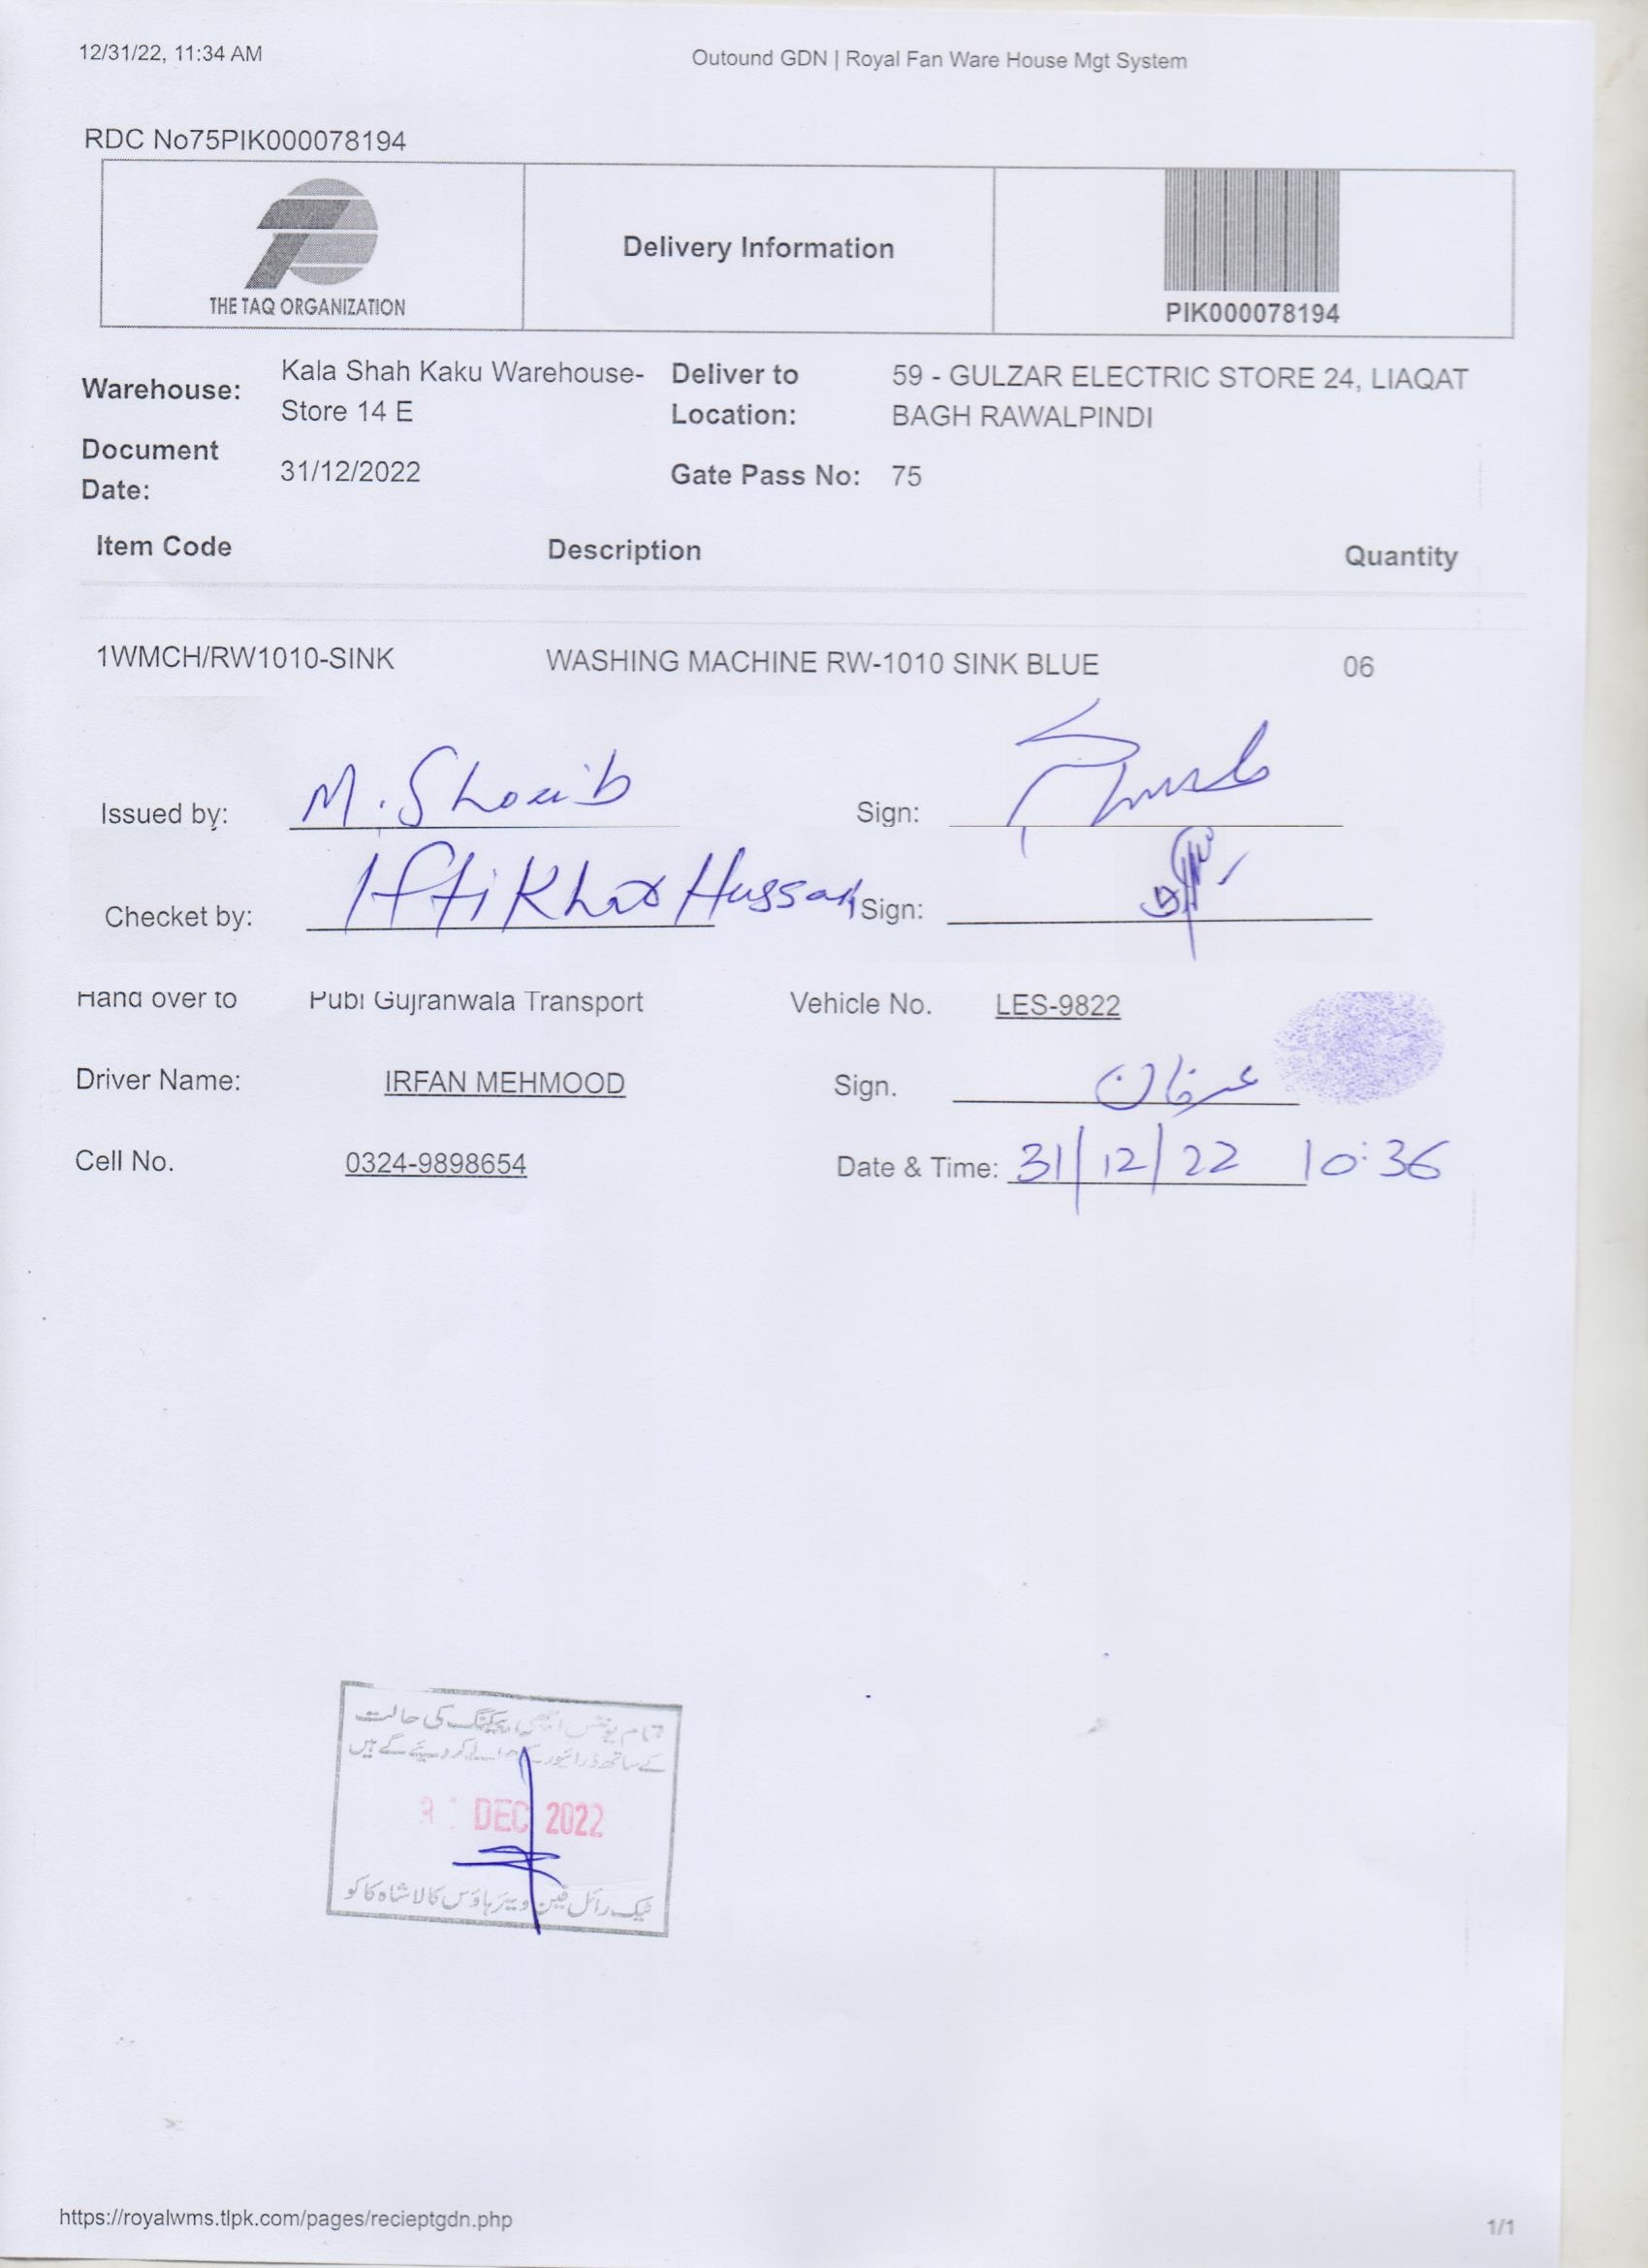 12/31/22, 11:34 AM Outound GDN | Royal Fan Ware House Mgt System
RDC No75PIK000078194
THE TAQ ORGANIZATION
Delivery Information
PIK000078194
Warehouse: Kala Shah Kaku Warehouse-
Store 14 E
Deliver to
Location:
59 - GULZAR ELECTRIC STORE 24, LIAQAT
BAGH RAWALPINDI
Document
Date:
31/12/2022
Gate Pass No: 75
Item Code Description Quantity
1WMCH/RW1010-SINK WASHING MACHINE RW-1010 SINK BLUE 06
Issued by: M. Shoaib Sign:
Checket by: Iftikhar Hussain Sign:
Hand over to Pubi Gujranwala Transport Vehicle No. LES-9822
Driver Name: IRFAN MEHMOOD Sign. عرفان
Cell No. 0324-9898654 Date & Time: 31/12/22 10:36
تمام یونٹس اچھی پیکنگ کی حالت
کے ساتھ ڈرائیور کے حوالے کر دیئے گے ہیں
DEC 2022
ٹیک رائل فین ویئر ہاؤس کالا شاہ کاکو
https://royalwms.tlpk.com/pages/recieptgdn.php 1/1